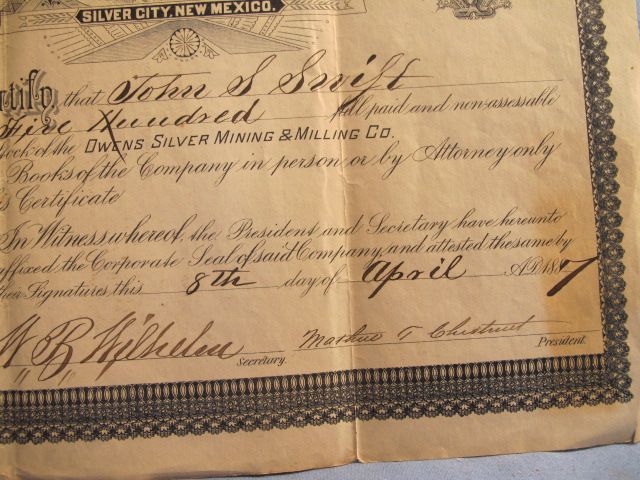 SILVER CITY, NEW MEXICO.
tify, that John S Swift
Five Hundred full paid and non-assessable
ock of the OWENS SILVER MINING & MILLING CO.
Books of the Company in person or by Attorney only
is Certificate
In Witness whereof, the President and Secretary have hereunto
affixed the Corporate Seal of said Company, and attested the same by
their Signatures this 8th day of April A.D. 18
W B Wilhelm Secretary. T Chestnut President.